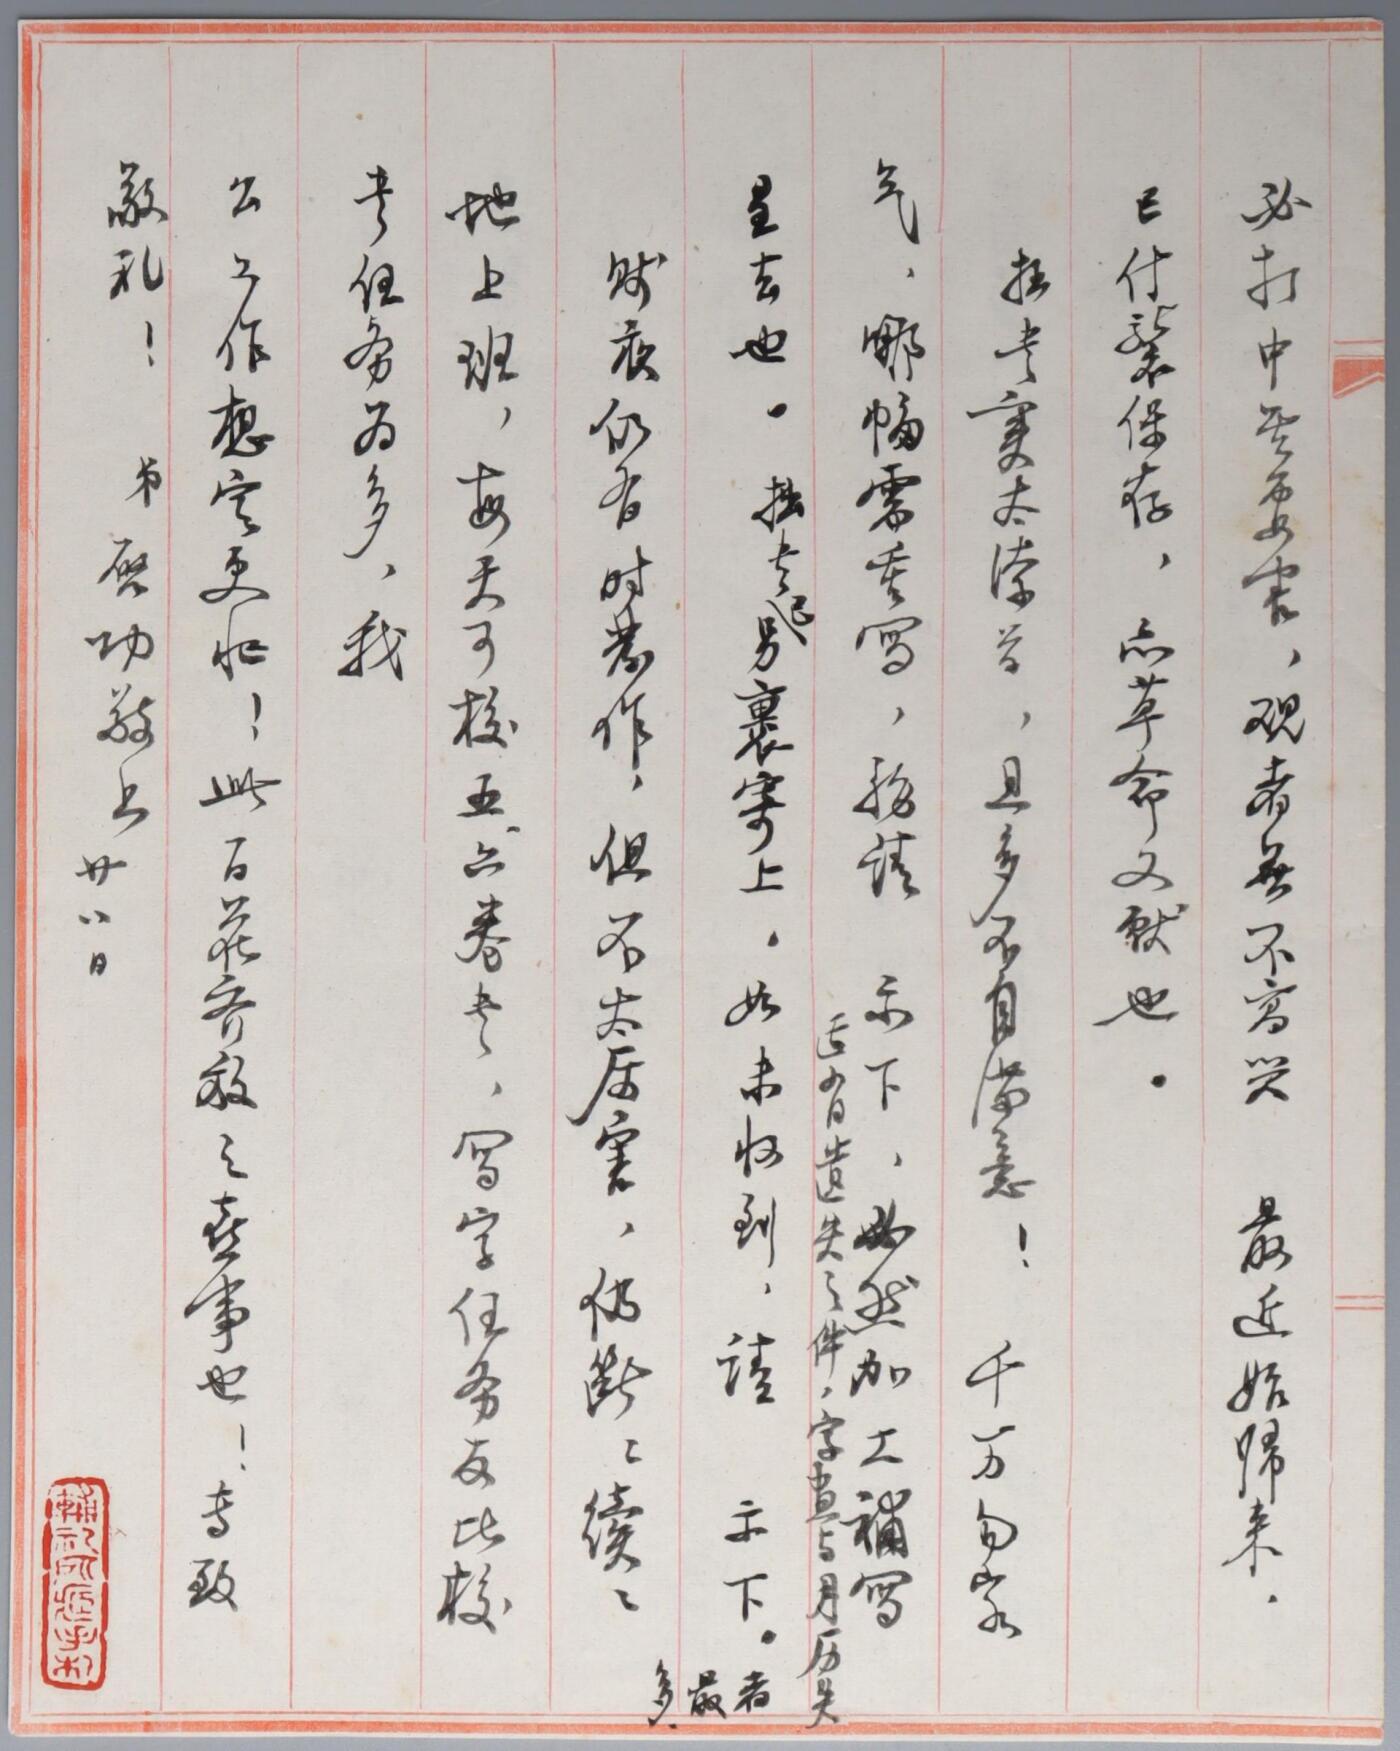 必打中其要害，观者无不寫哭 最近始歸来，
已付装保存，点革命文献也。
拙书实太潦草，且多不自满意！ 千万勿客
气，哪幅需重写，務请 示下，必然加工補写
呈去也。拙书已另裹寄上，如未收到，请 示下。
近有日遗失之件，字画与月历失
者最多
贱疾仍有时发作，但不太厉害，仍断之續之
地上班，每天可校五六卷书，写字任务反比校
书任务为多，我
公工作想定更忙！此百花齐放之喜事也！专致
敬礼！ 弟啓功敬上 廿八日